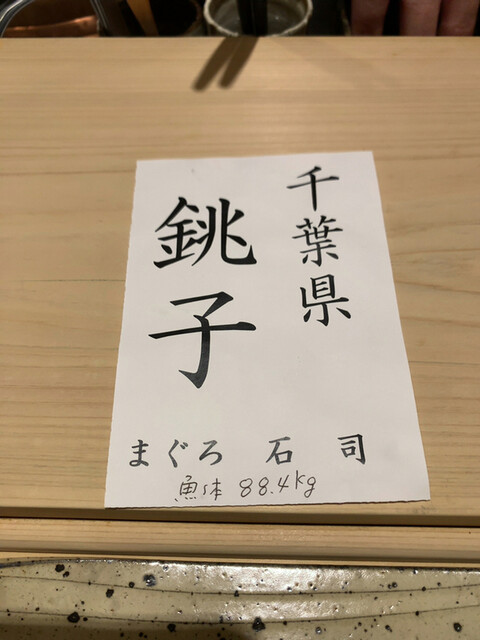 千葉県
銚子
まぐろ 石司
魚体 88.4kg